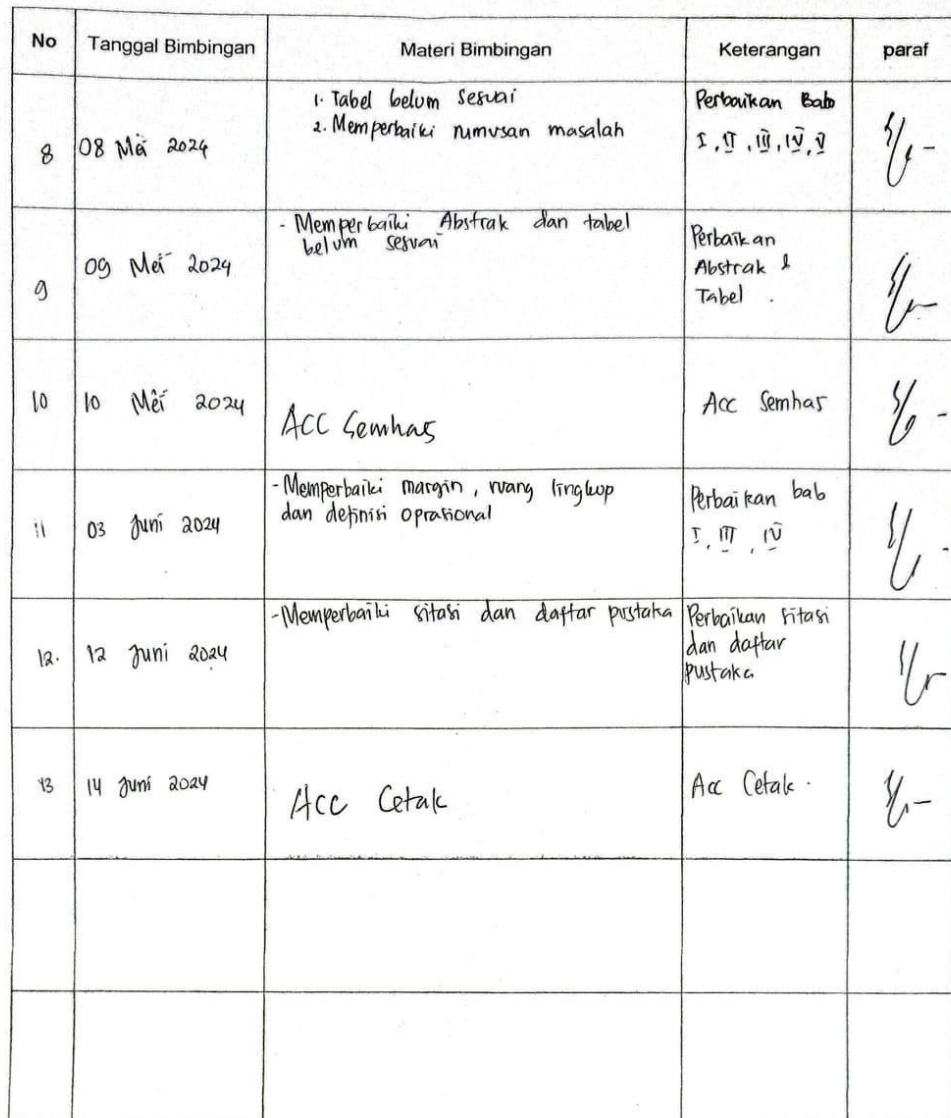 No Tanggal Bimbingan Materi Bimbingan Keterangan paraf
8 08 Mei 2024
1. Tabel belum sesuai
2. Memperbaiki rumusan masalah
Perbaikan Bab
I, II, III, IV, V
9 09 Mei 2024
- Memperbaiki Abstrak dan tabel
belum sesuai
Perbaikan
Abstrak &
Tabel
10 10 Mei 2024
ACC Semhas
Acc Semhas
11 03 Juni 2024
- Memperbaiki margin, ruang lingkup
dan definisi oprasional
Perbaikan bab
I, III, IV
12. 12 Juni 2024
- Memperbaiki sitasi dan daftar pustaka
Perbaikan sitasi
dan daftar
pustaka
13 14 Juni 2024
Acc Cetak
Acc Cetak.